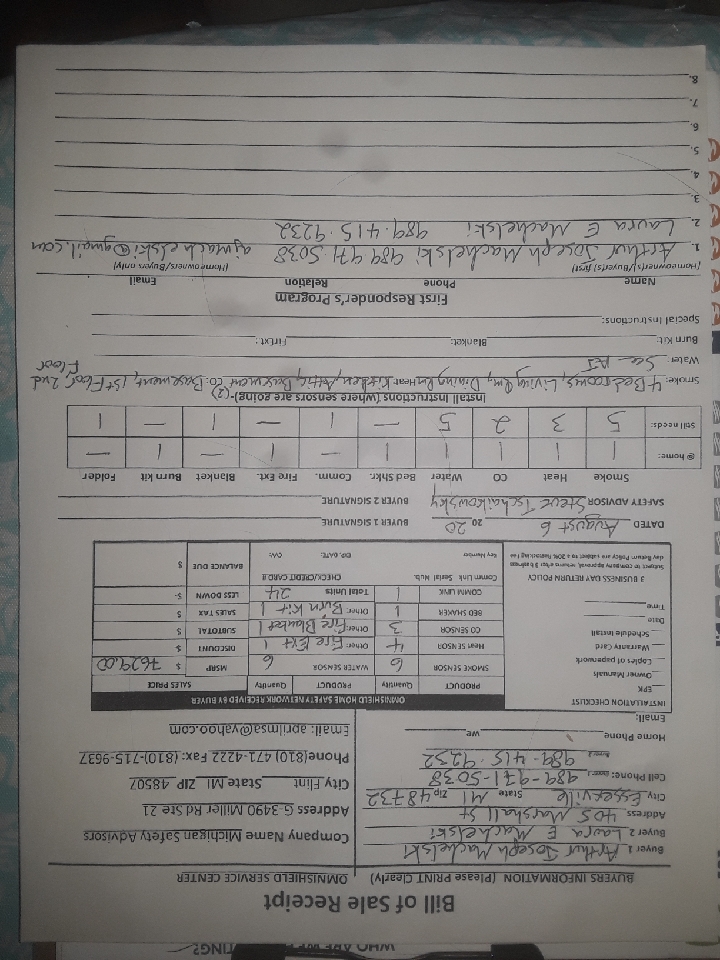 WHO ARE WE
ITING?
Bill of Sale Receipt
BUYERS INFORMATION (Please PRINT Clearly)
OMNISHIELD SERVICE CENTER
Buyer 1 Arthur Joseph Machelski
Buyer 2 Laura E Machelski
Address 405 Marshall St
City Essexville State MI Zip 48732
Cell Phone: (Buyer 1) 989-971-5038
(Buyer 2) 989-415-9232
Home Phone we
Email:
Company Name Michigan Safety Advisors
Address G-3490 Miller Rd Ste 21
City Flint State MI ZIP 48507
Phone(810) 471-4222 Fax: (810)-715-9637
Email: aprilmsa@yahoo.com
INSTALLATION CHECKLIST
EPK
Owner Manuals
Copies of paperwork
Warranty Card
Schedule Install
Date
Time
3 BUSINESS DAY RETURN POLICY
Subject to company approval, returns after 3 Business
day Return Policy are subject to a 30% Restocking Fee
OMNISHIELD HOME SAFETY NETWORK RECEIVED BY BUYER
PRODUCT Quantity PRODUCT Quantity SALES PRICE
SMOKE SENSOR 6 WATER SENSOR 6 MSRP $ 7629.00
Heat SENSOR 4 Other: Fire Ext 1 DISCOUNT $
CO SENSOR 3 Other: Fire Blanket 1 SUBTOTAL $
BED SHAKER 1 Other: Burn Kit 1 SALES TAX $
COMM LINK 1 Total Units 24 LESS DOWN $-
Comm Link Serial Nub. CHECK/CREDIT CARD # BALANCE DUE $
Key Number EXP. DATE. CVV:
DATED August 6 20 20 BUYER 1 SIGNATURE
SAFETY ADVISOR Steve Tschaikowsky BUYER 2 SIGNATURE
Smoke Heat CO Water Bed Shkr. Comm. Fire Ext. Blanket Burn kit Folder
@ home: 1 1 1 1 — 1 — 1 — —
Still needs: 5 3 2 5 — 1 — 1 — 1
Install Instructions (where sensors are going)- (2)
Smoke: 4 Bedrooms, Living Rm, Dining Rm Heat Kitchen, Attic, Basement CO: Basement, 1st Floor, 2nd Floor
Water:
Burn Kit: Blanket: FirExt:
Special Instructions:
First Responder's Program
Name Phone Relation Email
(Homeowner(s)/Buyer(s) first) (Homeowners/Buyers only)
1. Arthur Joseph Machelski 989 971-5038 ajmachelski@gmail.com
2. Laura E Machelski 989-415-9232
3.
4.
5.
6.
7.
8.